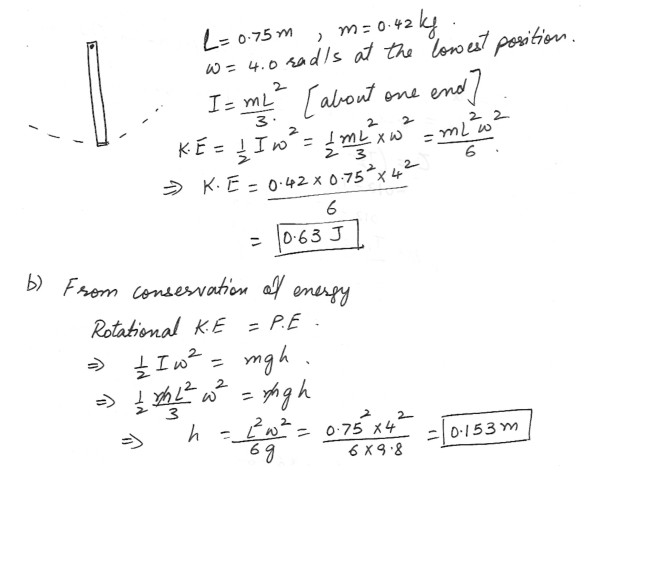 L = 0.75 m , m = 0.42 kg .
ω = 4.0 rad/s at the lowest position.
I = mL²/3. [about one end]
K.E = ½ I ω² = ½ mL²/3 × ω² = mL²ω²/6 .
⇒ K.E = 0.42 × 0.75² × 4²/6
= 0.63 J
b) From conservation of energy
Rotational K.E = P.E .
⇒ ½ I ω² = mgh .
⇒ ½ mL²/3 ω² = mgh
⇒ h = L²ω²/6g = 0.75² × 4²/6 × 9.8 = 0.153 m